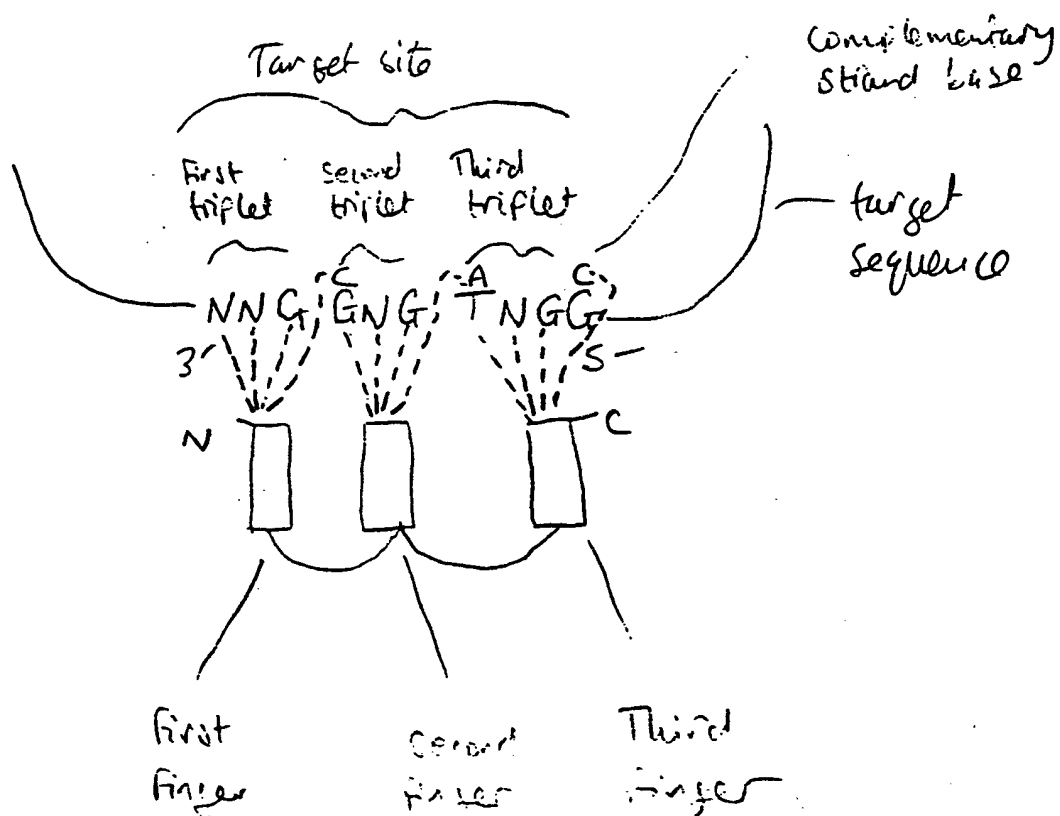 Target site
complementary
strand base
First
triplet
Second
triplet
Third
triplet
target
sequence
C
A
C
NNG GNG TNGG
3'
5
N
C
First
finger
Second
finger
Third
finger